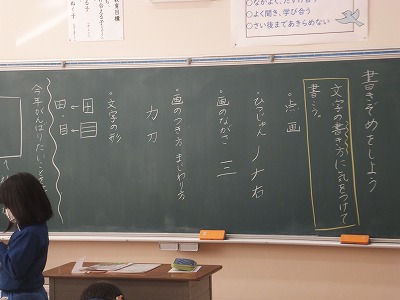 ○なかよく、たすけ合う
○よく聞き、学び合う
○さい後まであきらめない
書きぞめをしよう
文字の書き方に気をつけて
書こう。
・点画
・ひつじゅん ノナ右
・画のながさ 三
・画のつき方 まじわり方
力 刀
・文字の形
田・目
今年がんばりたいことを